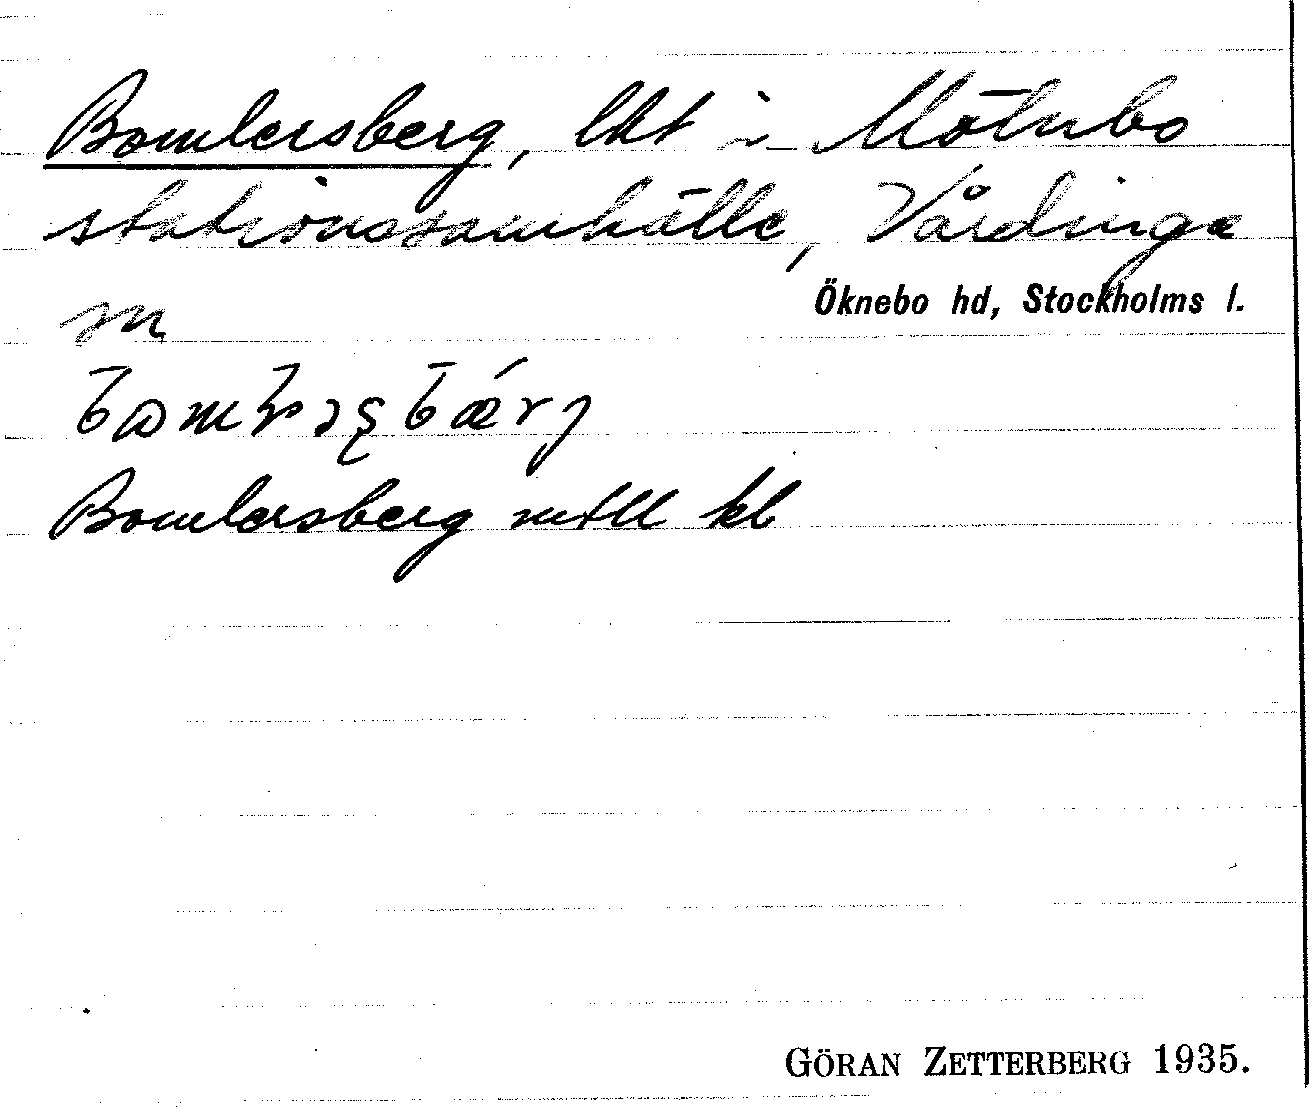 Bomlersberg, lht i Mölnbo
stationssamhälle, Vårdinga
sn
Öknebo hd, Stockholms l.
Bomlersberg mtll kb
GÖRAN ZETTERBERG 1935.